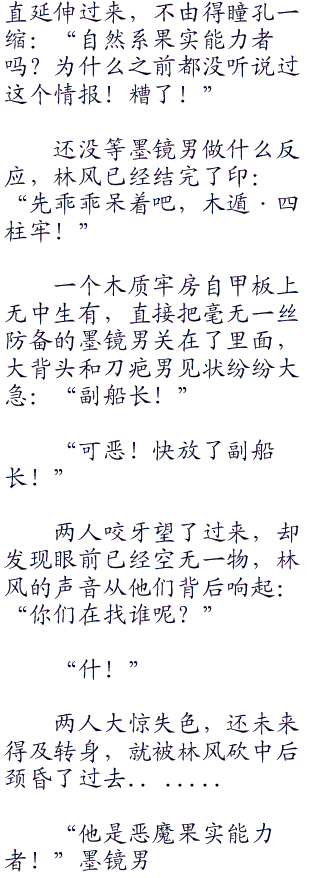 直延伸过来，不由得瞳孔一
缩：“自然系果实能力者
吗？为什么之前都没听说过
这个情报！糟了！”
还没等墨镜男做什么反
应，林风已经结完了印：
“先乖乖呆着吧，木遁·四
柱牢！”
一个木质牢房自甲板上
无中生有，直接把毫无一丝
防备的墨镜男关在了里面，
大背头和刀疤男见状纷纷大
急：“副船长！”
“可恶！快放了副船
长！”
两人咬牙望了过来，却
发现眼前已经空无一物，林
风的声音从他们背后响起：
“你们在找谁呢？”
“什！”
两人大惊失色，还未来
得及转身，就被林风砍中后
颈昏了过去.. .....
“他是恶魔果实能力
者！”墨镜男